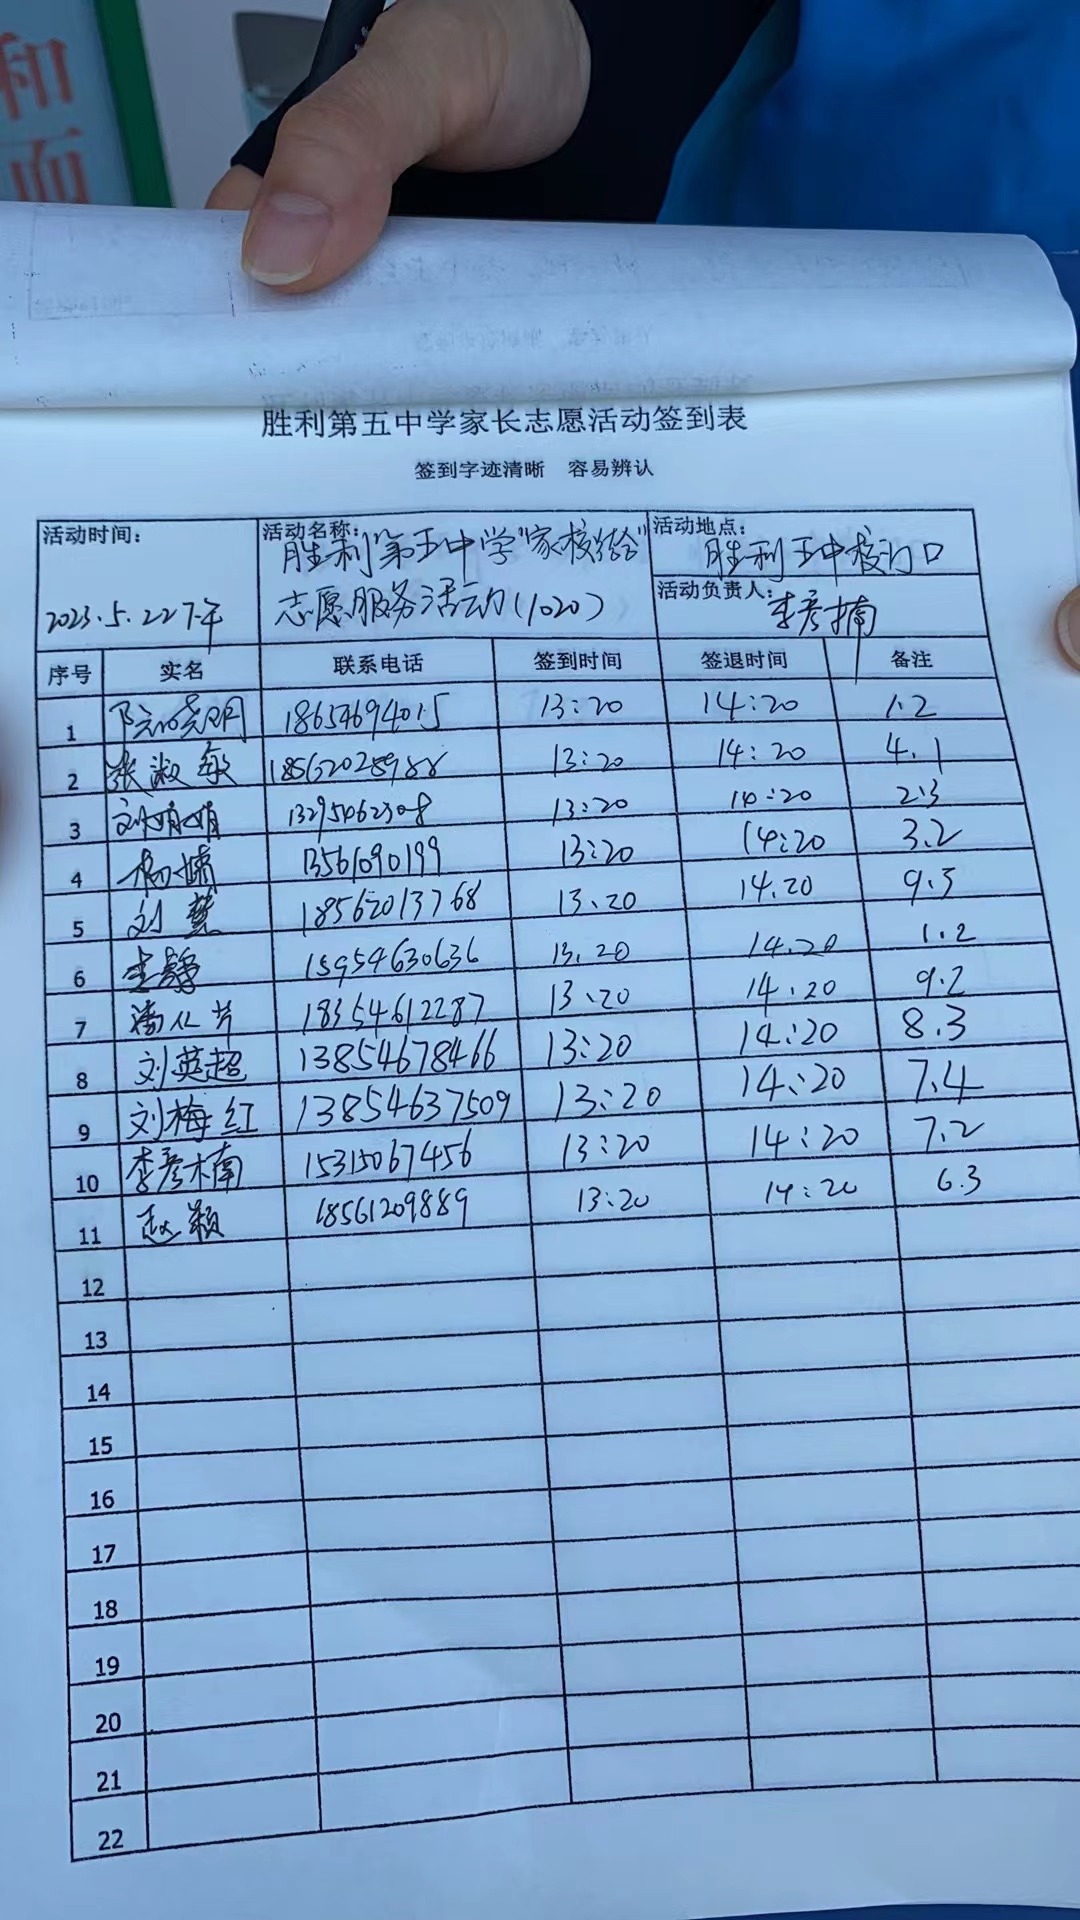 胜利第五中学家长志愿活动签到表
签到字迹清晰 容易辨认
活动时间: 2023.5.22下午
活动名称: 胜利第五中学"家校结合"
志愿服务活动(1020)
活动地点: 胜利五中校门口
活动负责人: 李彦楠
序号 实名 联系电话 签到时间 签退时间 备注
1 阮晓明 18654694015 13:20 14:20 1.2
2 张淑敏 18562028988 13:20 14:20 4.1
3 刘娟娟 13295462308 13:20 14:20 2.3
4 杨婧 13561090199 13:20 14:20 3.2
5 刘慧 18562013768 13.20 14.20 9.3
6 15954630636 13.20 14.20 1.2
7 18354612287 13.20 14.20 9.2
8 刘英超 13854678466 13:20 14:20 8.3
9 刘梅红 13854637509 13:20 14:20 7.4
10 李彦楠 15315067456 13:20 14:20 7.2
11 赵颖 18561209889 13:20 14:20 6.3
12
13
14
15
16
17
18
19
20
21
22